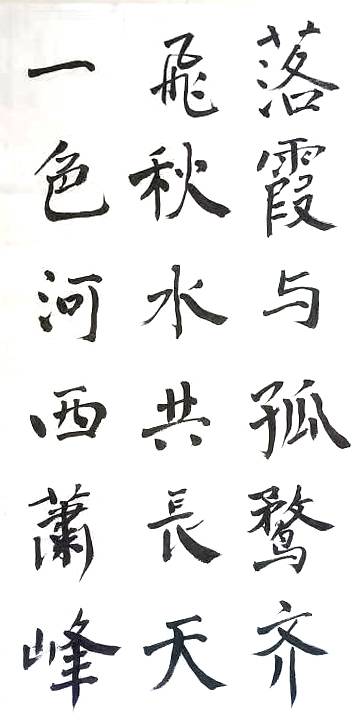 落霞与孤鹜齐
飛秋水共長天
一色河西蕭峰